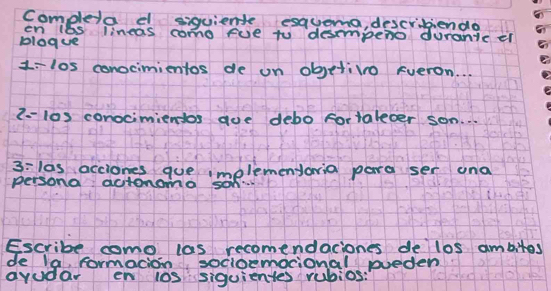 Completa el siguiente esquema, describiendo
en las lineas como fue tu desempeño durante el
bloque
1- los conocimientos de un objetivo fueron...
2- los conocimientos que debo fortalecer son...
3- las acciones que implementaria para ser una
persona autonama son...
Escribe como las recomendaciones de los ambitos
de la formación socioemocional pueden
ayudar en los siguientes rubios: